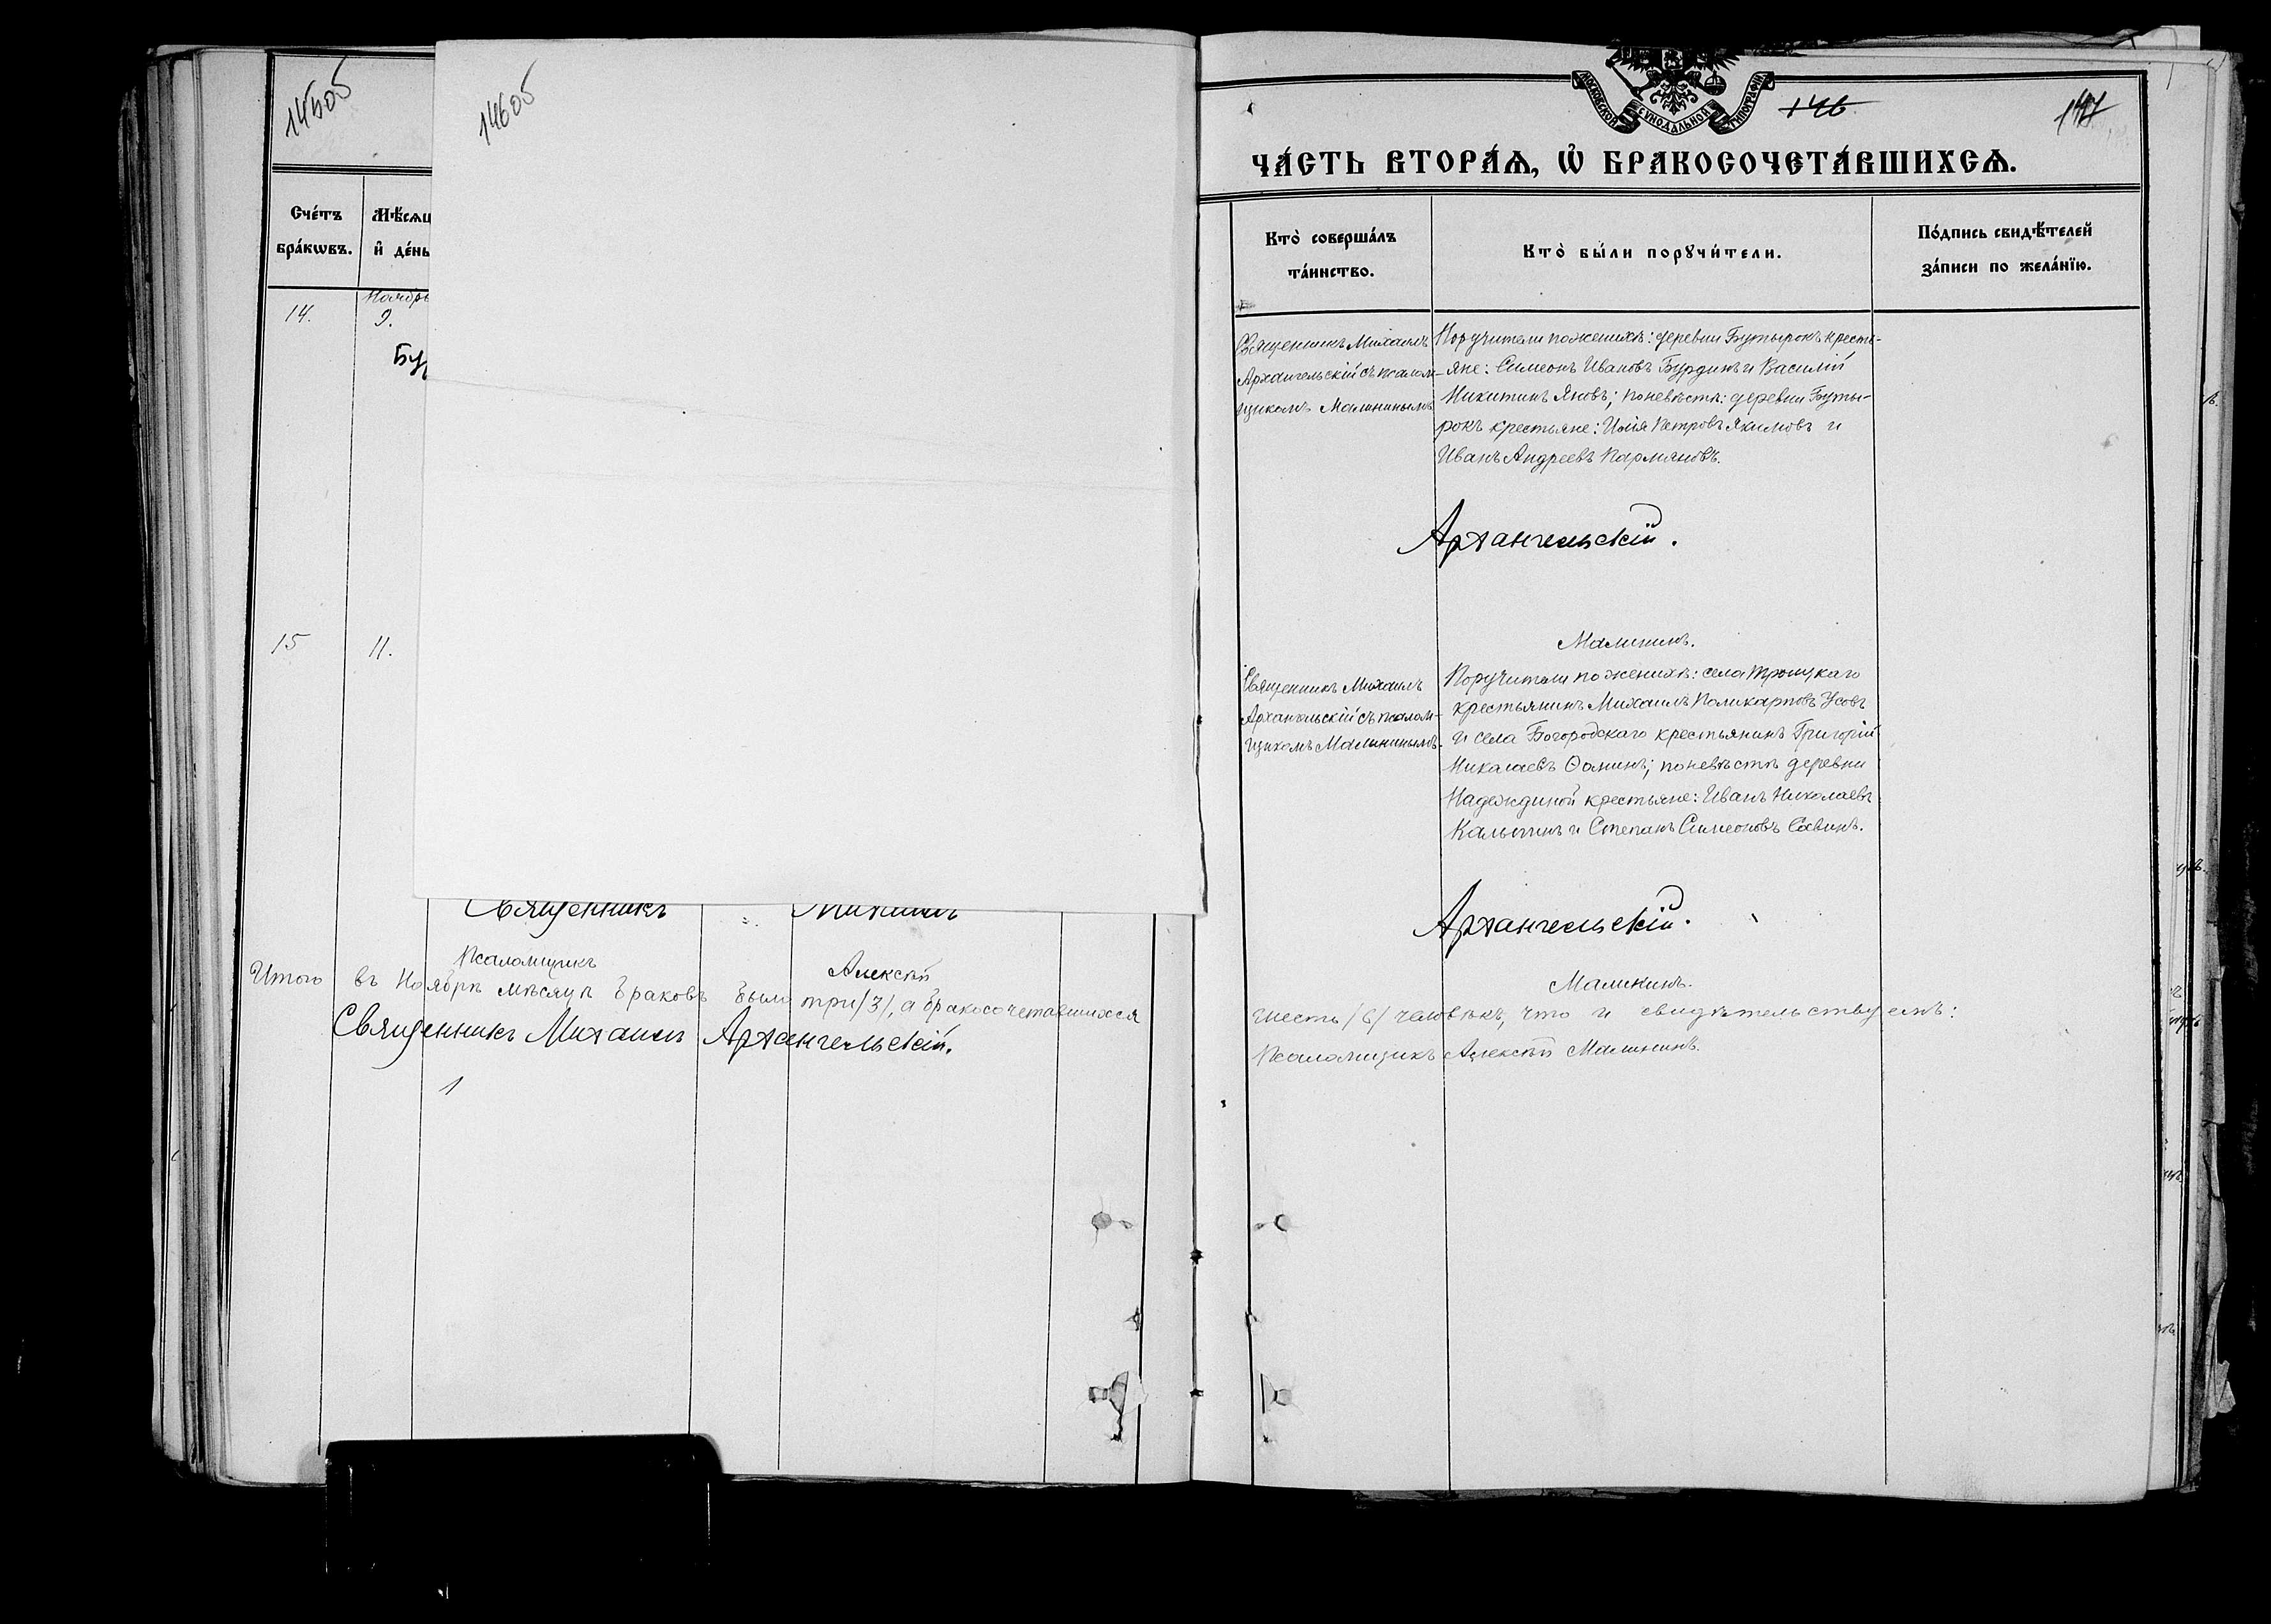 145об
146об
Счетъ браковъ.
Мѣсяц и день
Ноябрь
14.
9.
Бу
15
11.
Священникъ Михаилъ
Псаломщикъ Алексѣй
Итого въ Ноябрѣ мѣсяцѣ браковъ было три /3/, а бракосочетавшихся
Священникъ Михаилъ Архангельскій.
МОСКОВСКОЙ СѴНОДАЛЬНОЙ ТИПОГРАФІИ
146
147
ЧА́СТЬ ВТОРА́Ѧ, Ѡ҆ БРАКОСОЧЕТА́ВШИХСѦ.
Кто̀ соверша́лъ
та́инство.
Кто̀ бы́ли порꙋчи́тели.
По́дпись свидѣ́телей
за́писи по жела́нїю.
Священникъ Михаилъ
Архангельскій съ псалом-
щикомъ Малининымъ
Поручители по женихѣ: деревни Бутырокъ кресть-
яне: Симеонъ Ивановъ Бурдинъ и Василій
Никитинъ Яновъ; по невѣстѣ: деревни Буты-
рокъ крестьяне: Илія Петровъ Якимовъ и
Иванъ Андреевъ Пармяновъ.
Архангельскій.
Малининъ.
Священникъ Михаилъ
Архангельскій съ псалом-
щикомъ Малининымъ.
Поручители по женихѣ: села Троицкаго
крестьянинъ Михаилъ Поликарповъ Усовъ
и села Богородскаго крестьянинъ Григорій
Николаевъ Ѳоминъ; по невѣстѣ деревни
Надеждиной крестьяне: Иванъ Николаевъ
и Степанъ Симеоновъ Савинъ.
Архангельскій.
Малининъ.
шесть /6/ человѣкъ, что и свидѣтельствуемъ:
Псаломщикъ Алексѣй Малининъ.